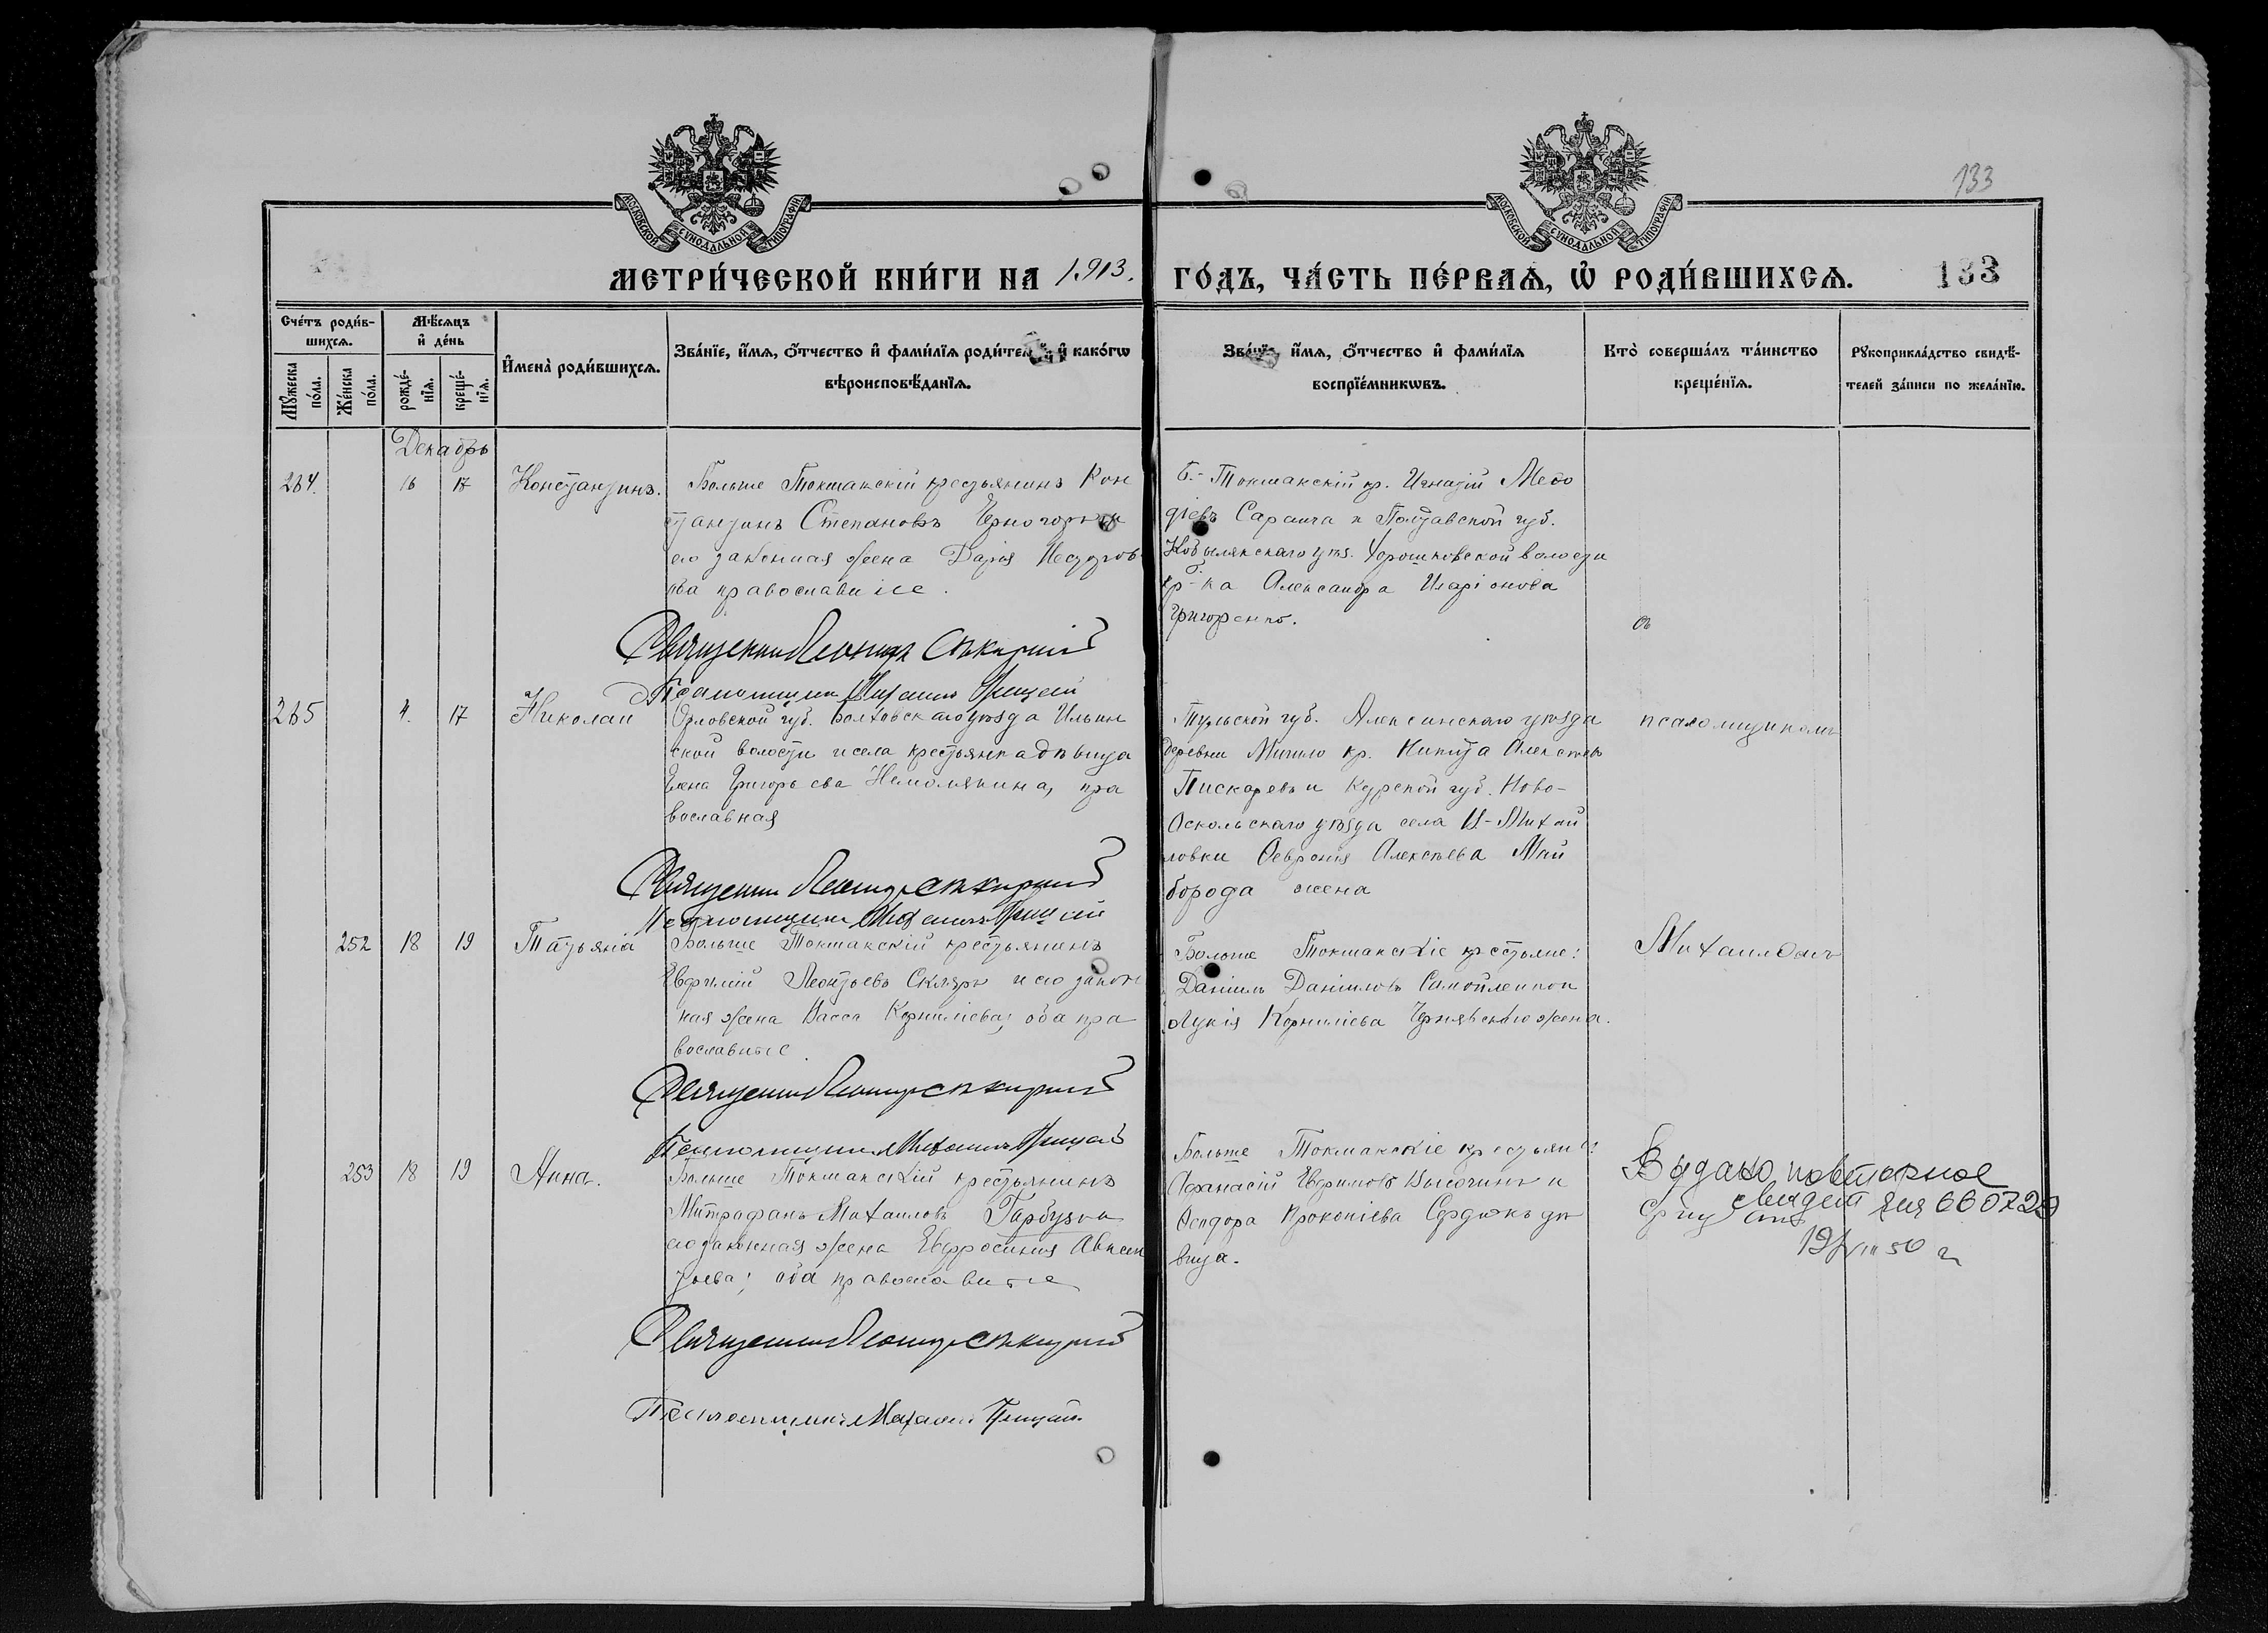 133
МОСКОВСКОЙ СѴНОДАЛЬНОЙ ТИПОГРАФІИ
МОСКОВСКОЙ СѴНОДАЛЬНОЙ ТИПОГРАФІИ
МЕТРИ́ЧЕСКОЙ КНИ́ГИ НА 1913. ГО́ДЪ, ЧА́СТЬ ПЕ́РВАѦ, Ѡ҆ РОДИ́ВШИХСѦ. 133
Сче́тъ роди́в-
шихсѧ.
Мꙋ́жеска по́ла.
Же́нска по́ла.
Мѣ́сѧцъ и҆ де́нь
рожде́-нїѧ.
креще́-нїѧ.
И҆мена̀ роди́вшихсѧ.
Зва́нїе, и҆́мѧ, ѻ҆́тчество и҆ фами́лїѧ роди́телей, и҆ како́гѡ
вѣроисповѣ́данїѧ.
Зва́нїе, и҆́мѧ, ѻ҆́тчество и҆ фами́лїѧ
воспрїе́мникѡвъ.
Кто̀ соверша́лъ та́инство
креще́нїѧ.
Рꙋкоприкла́дство свидѣ́-
телей за́писи по жела́нїю.
Декабрь
264. 16 17 Константинъ.
Больше Токмакскій крестьянинъ Кон
стантинъ Степановъ
его законная жена Дарія
ва православные.
Священник Леонидъ
Псаломщик Михаилъ Грицай
Б.- Токмакскій кр. Игнатій Мефо
діевъ и Полтавской губ.
Кобылякскаго уѣз. волости
кр-ка Александра Иларіонова
Григоренко.
съ
265 4. 17 Николай
Орловской губ. Болховскаго уѣзда Ильин
ской волости и села крестьянка дѣвица
Елена Григорьева Немолякина, пра
вославная
Священник Леонидъ
Псаломщик Михаилъ Грицай
Тульской губ. Алексинскаго уѣзда
деревни кр. Никита Алексѣевъ
Пискаревъ и Курской губ. Ново-
Оскольскаго уѣзда села Михай
ловки Февронія Алексѣева Май
борода жена
псаломщикомъ
252 18 19 Татьянiа
Больше Токмакскій крестьянинъ
Евфимій Леонтьевъ Скляръ и его закон
ная жена Васса Корниліева, оба пра
вославные
Священник Леонидъ
Псаломщик Михаилъ Грицай
Больше Токмакскіе крестьяне:
Даніилъ Даніиловъ Самойленко и
Лукія Корниліева Чернявскаго жена.
Михаиломъ
253 18 19 Анна.
Больше Токмакскій крестьянинъ
Митрофанъ Михаиловъ Гарбузъ и
его законная жена Евфросинія Авксен
тьева; оба православные
Священник Леонидъ
Псаломщикъ Михаилъ Грицай
Больше Токмакскіе крестьяне:
Афанасій Евфимовъ Высочинъ и
Феодора Прокопіева Сердюкъ дѣ
вица.
Выдано повторное
свидет 660729
19/VIII 50 г